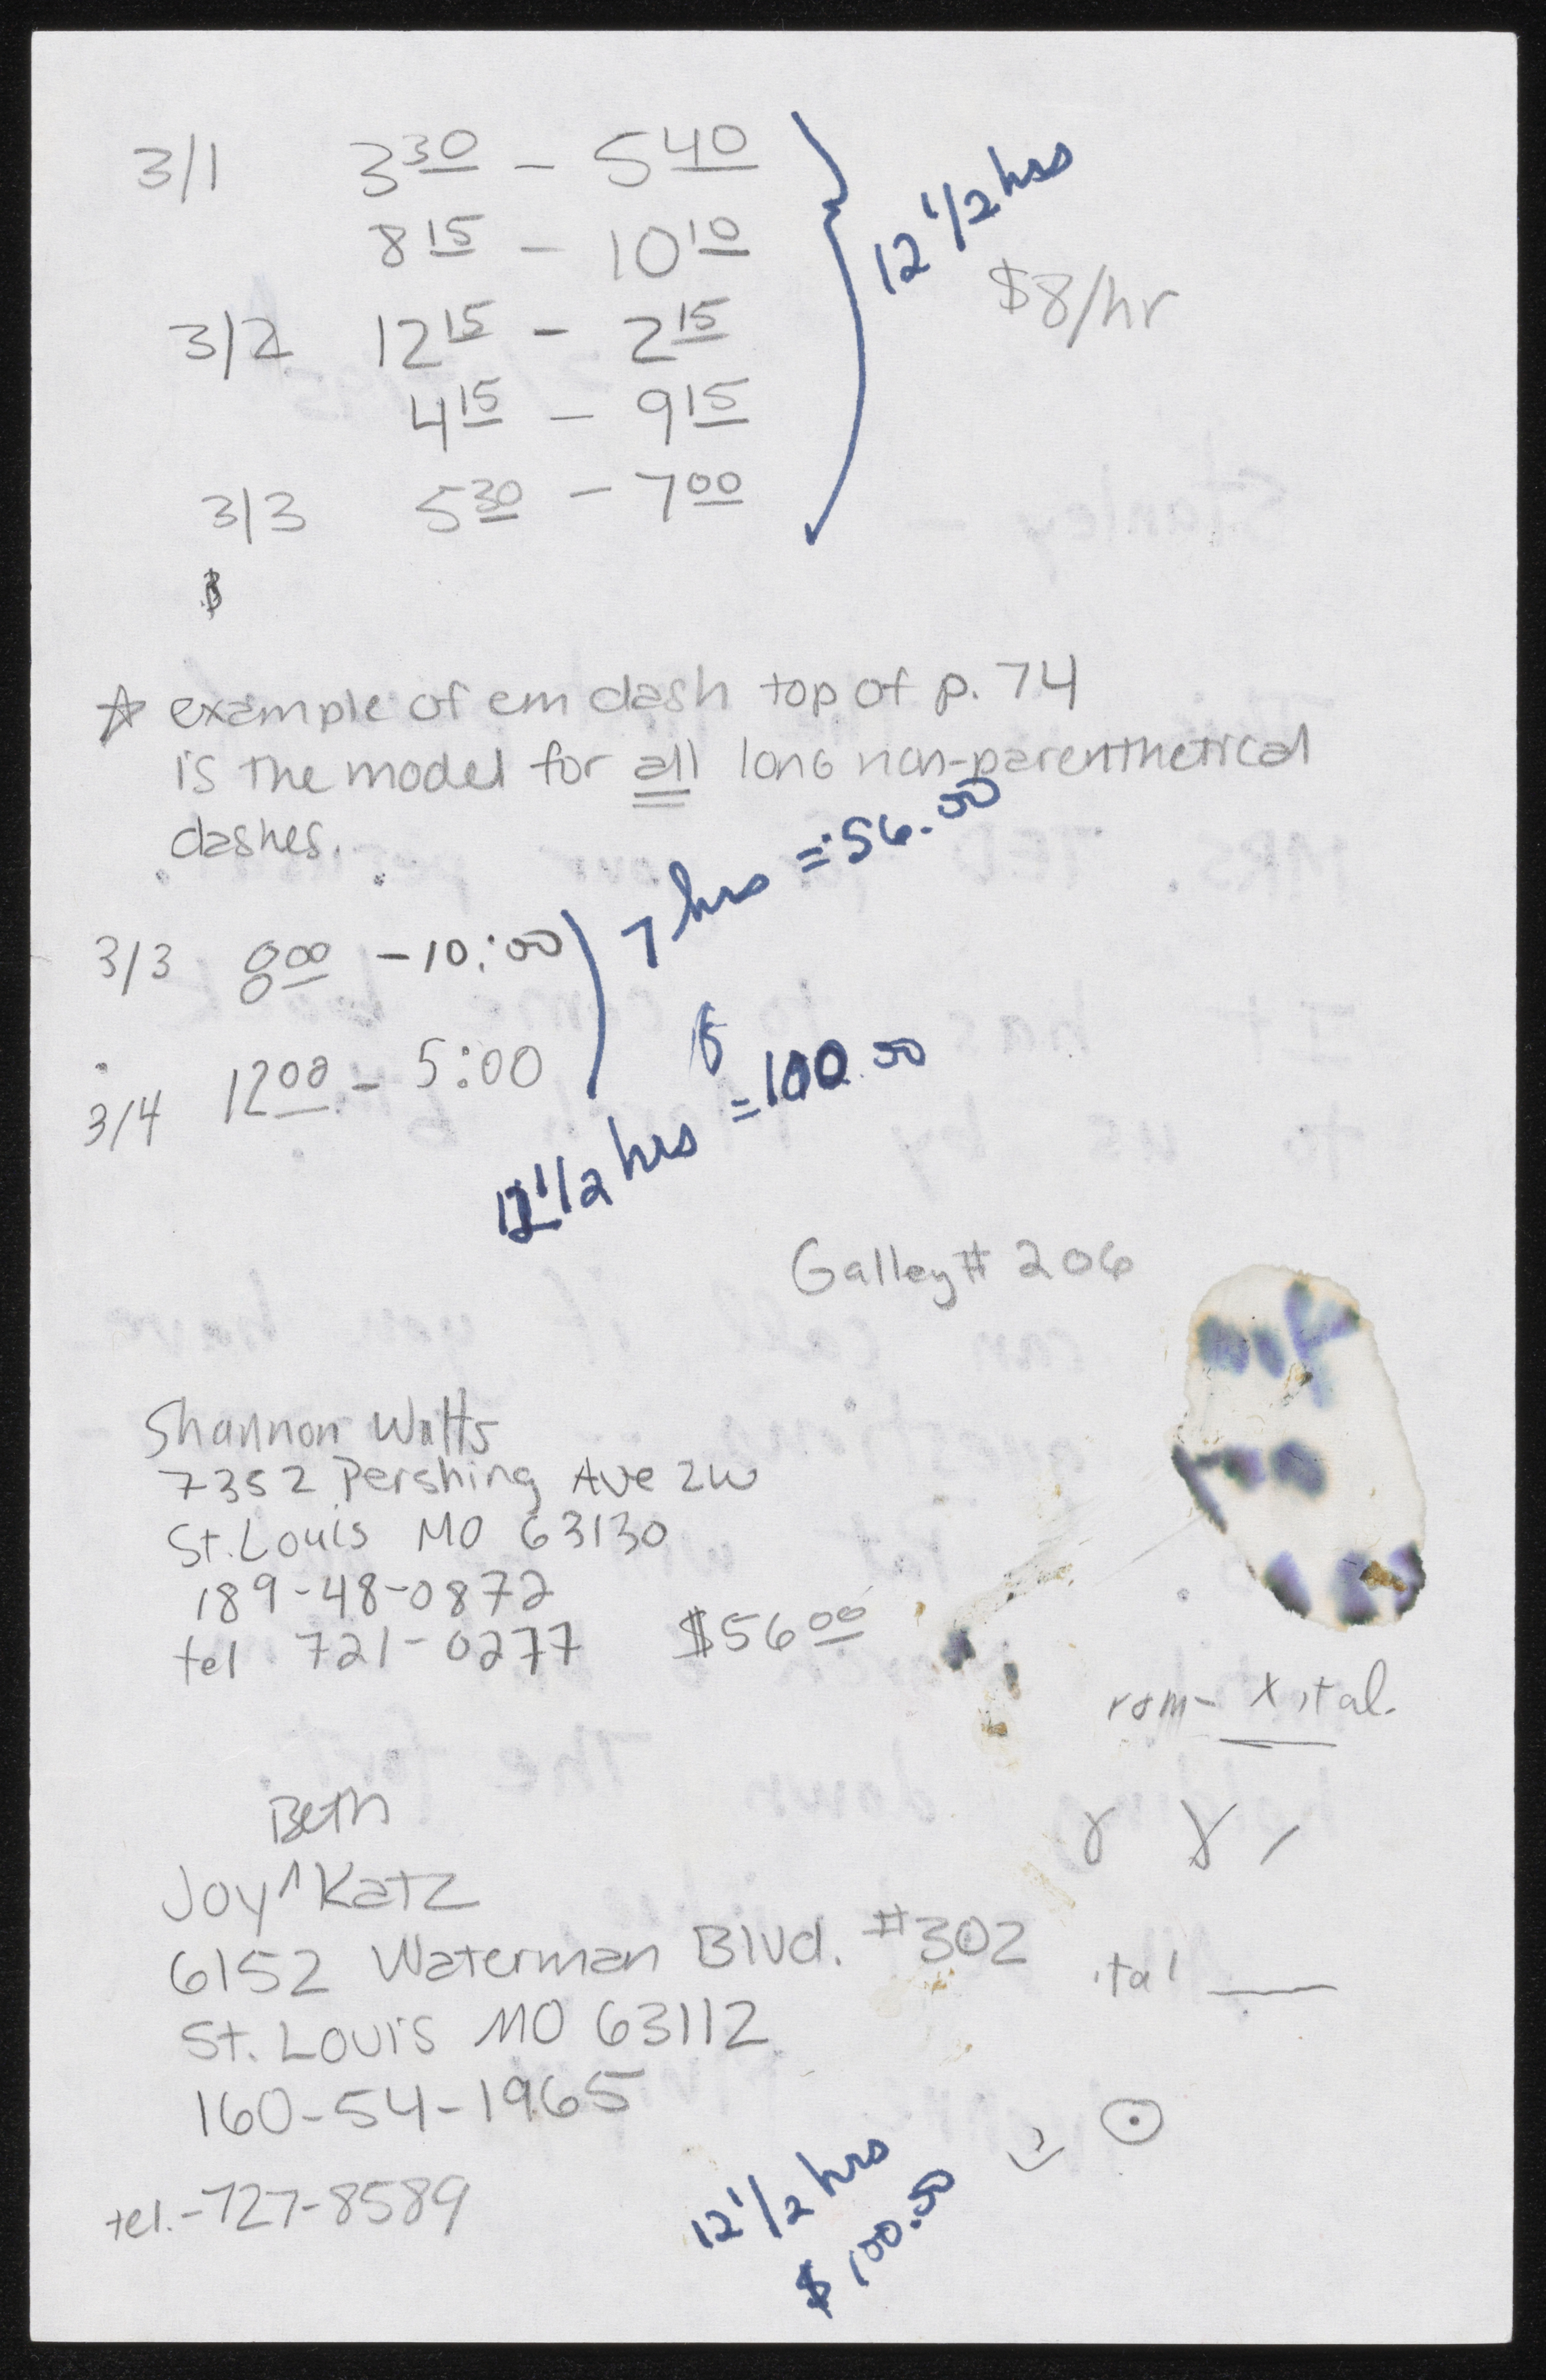 3/1 3 30 - 5 40
8 15 - 10 10
3/2 12 15 - 2 15
4 15 - 9 15
3/3 5 30 - 7 00
12 1/2 hrs
$8/hr
$
☆ example of em dash top of p. 74
is the model for all long non-parenthetical
dashes.
3/3 8 00 - 10:00
3/4 12 00 - 5:00
7 hrs = 56.00
12 1/2 hrs = 100.00
Galley # 206
Shannon Watts
7352 Pershing Ave 2W
St. Louis MO 63130
189-48-0872
tel 721-0277 $56 00
rom- x ital.
Beth
Joy ^ Katz
6152 Waterman Blvd. #302
St. Louis MO 63112
160-54-1965
tel.-727-8589
ital
12 1/2 hrs
$100.00